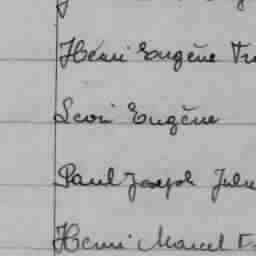 Henri Eugène
Léon Eugène
Paul Joseph Jules
Henri Marcel